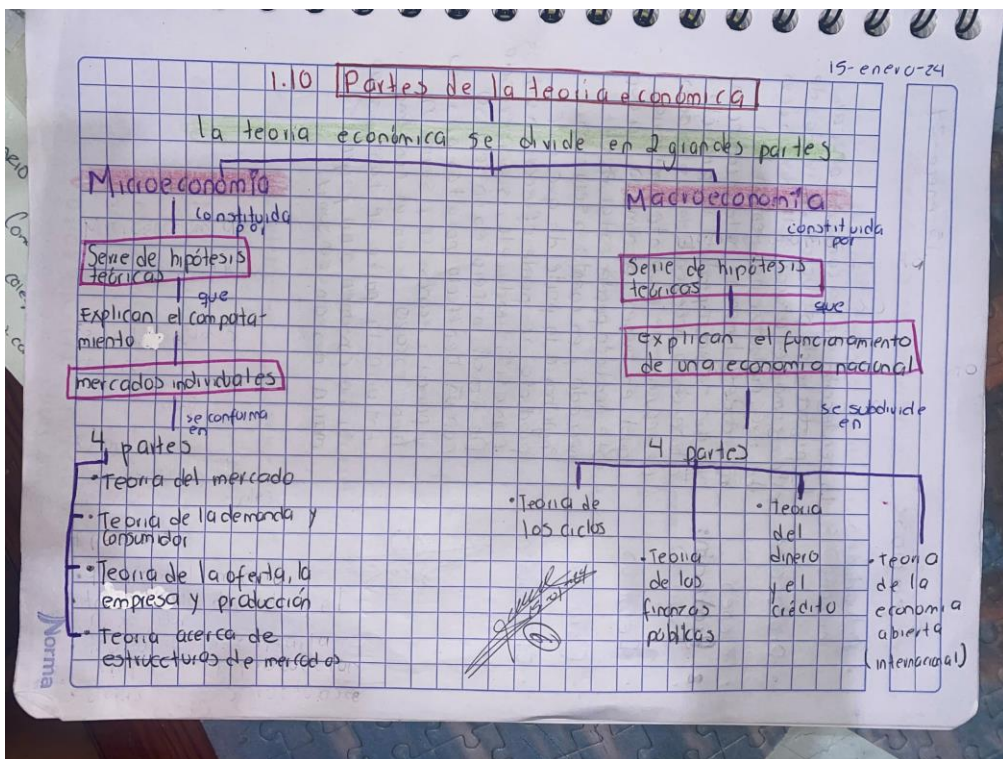 15-enero-24
1.10 Partes de la teoria económica
la teoria económica se divide en 2 grandes partes
Microeconomía
constituida
por
Serie de hipótesis
teóricas
que
Explican el compota-
miento
mercados individuales
se conforma
en
4 partes
• Teoria del mercado
• Teoria de la demanda y
consumidor
• Teoria de la oferta, la
empresa y producción
• Teoria acerca de
estruccturas de mercados
Macroeconomía
constituida
por
Serie de hipótesis
teóricas
que
explican el funcionamiento
de una economia nacional
se subdivide
en
4 partes
• Teoria de
los ciclos
• Teoria
de las
finanzas
públicas
• teoria
del
dinero
y el
crédito
• teoria
de la
economia
abierta
(internacional)
Norma